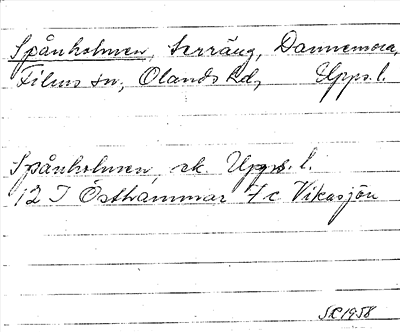 Spånholmen, terräng, Dannemora,
Films sn, Olands hd, Upps. l.
Spånholmen, ek Upps. l.
12 I Östhammar 7 c Vikasjön
SK 1958